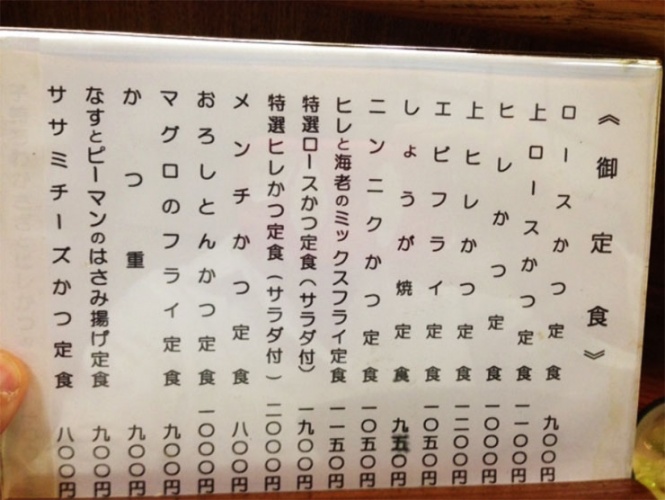 《御定食》
ロースかつ定食 九〇〇円
上ロースかつ定食 一一〇〇円
ヒレかつ定食 一〇〇〇円
上ヒレかつ定食 一二〇〇円
エビフライ定食 一〇五〇円
しょうが焼定食 九五〇円
ニンニクかつ定食 一〇五〇円
ヒレと海老のミックスフライ定食 一一五〇円
特選ロースかつ定食(サラダ付) 一九〇〇円
特選ヒレかつ定食(サラダ付) 二〇〇〇円
メンチかつ定食 八〇〇円
おろしとんかつ定食 一〇〇〇円
マグロのフライ定食 九〇〇円
かつ重 九〇〇円
なすとピーマンのはさみ揚げ定食 九〇〇円
ササミチーズかつ定食 八〇〇円